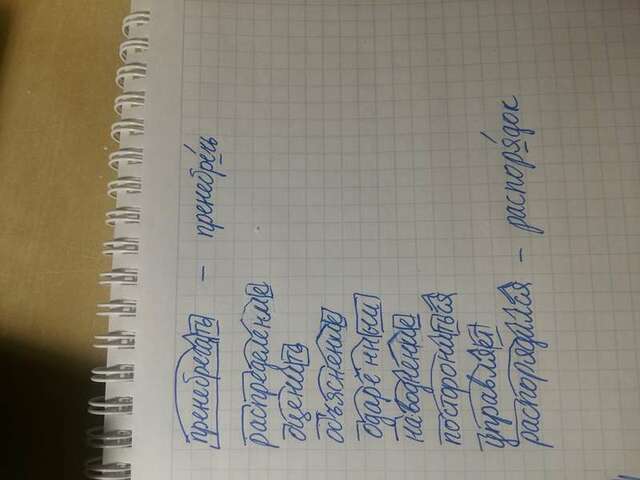 пренебрегать – пренебречь
распределение
оценить
объяснение
одарённый
наводнение
посторониться
управляет
распорядился – распорядок